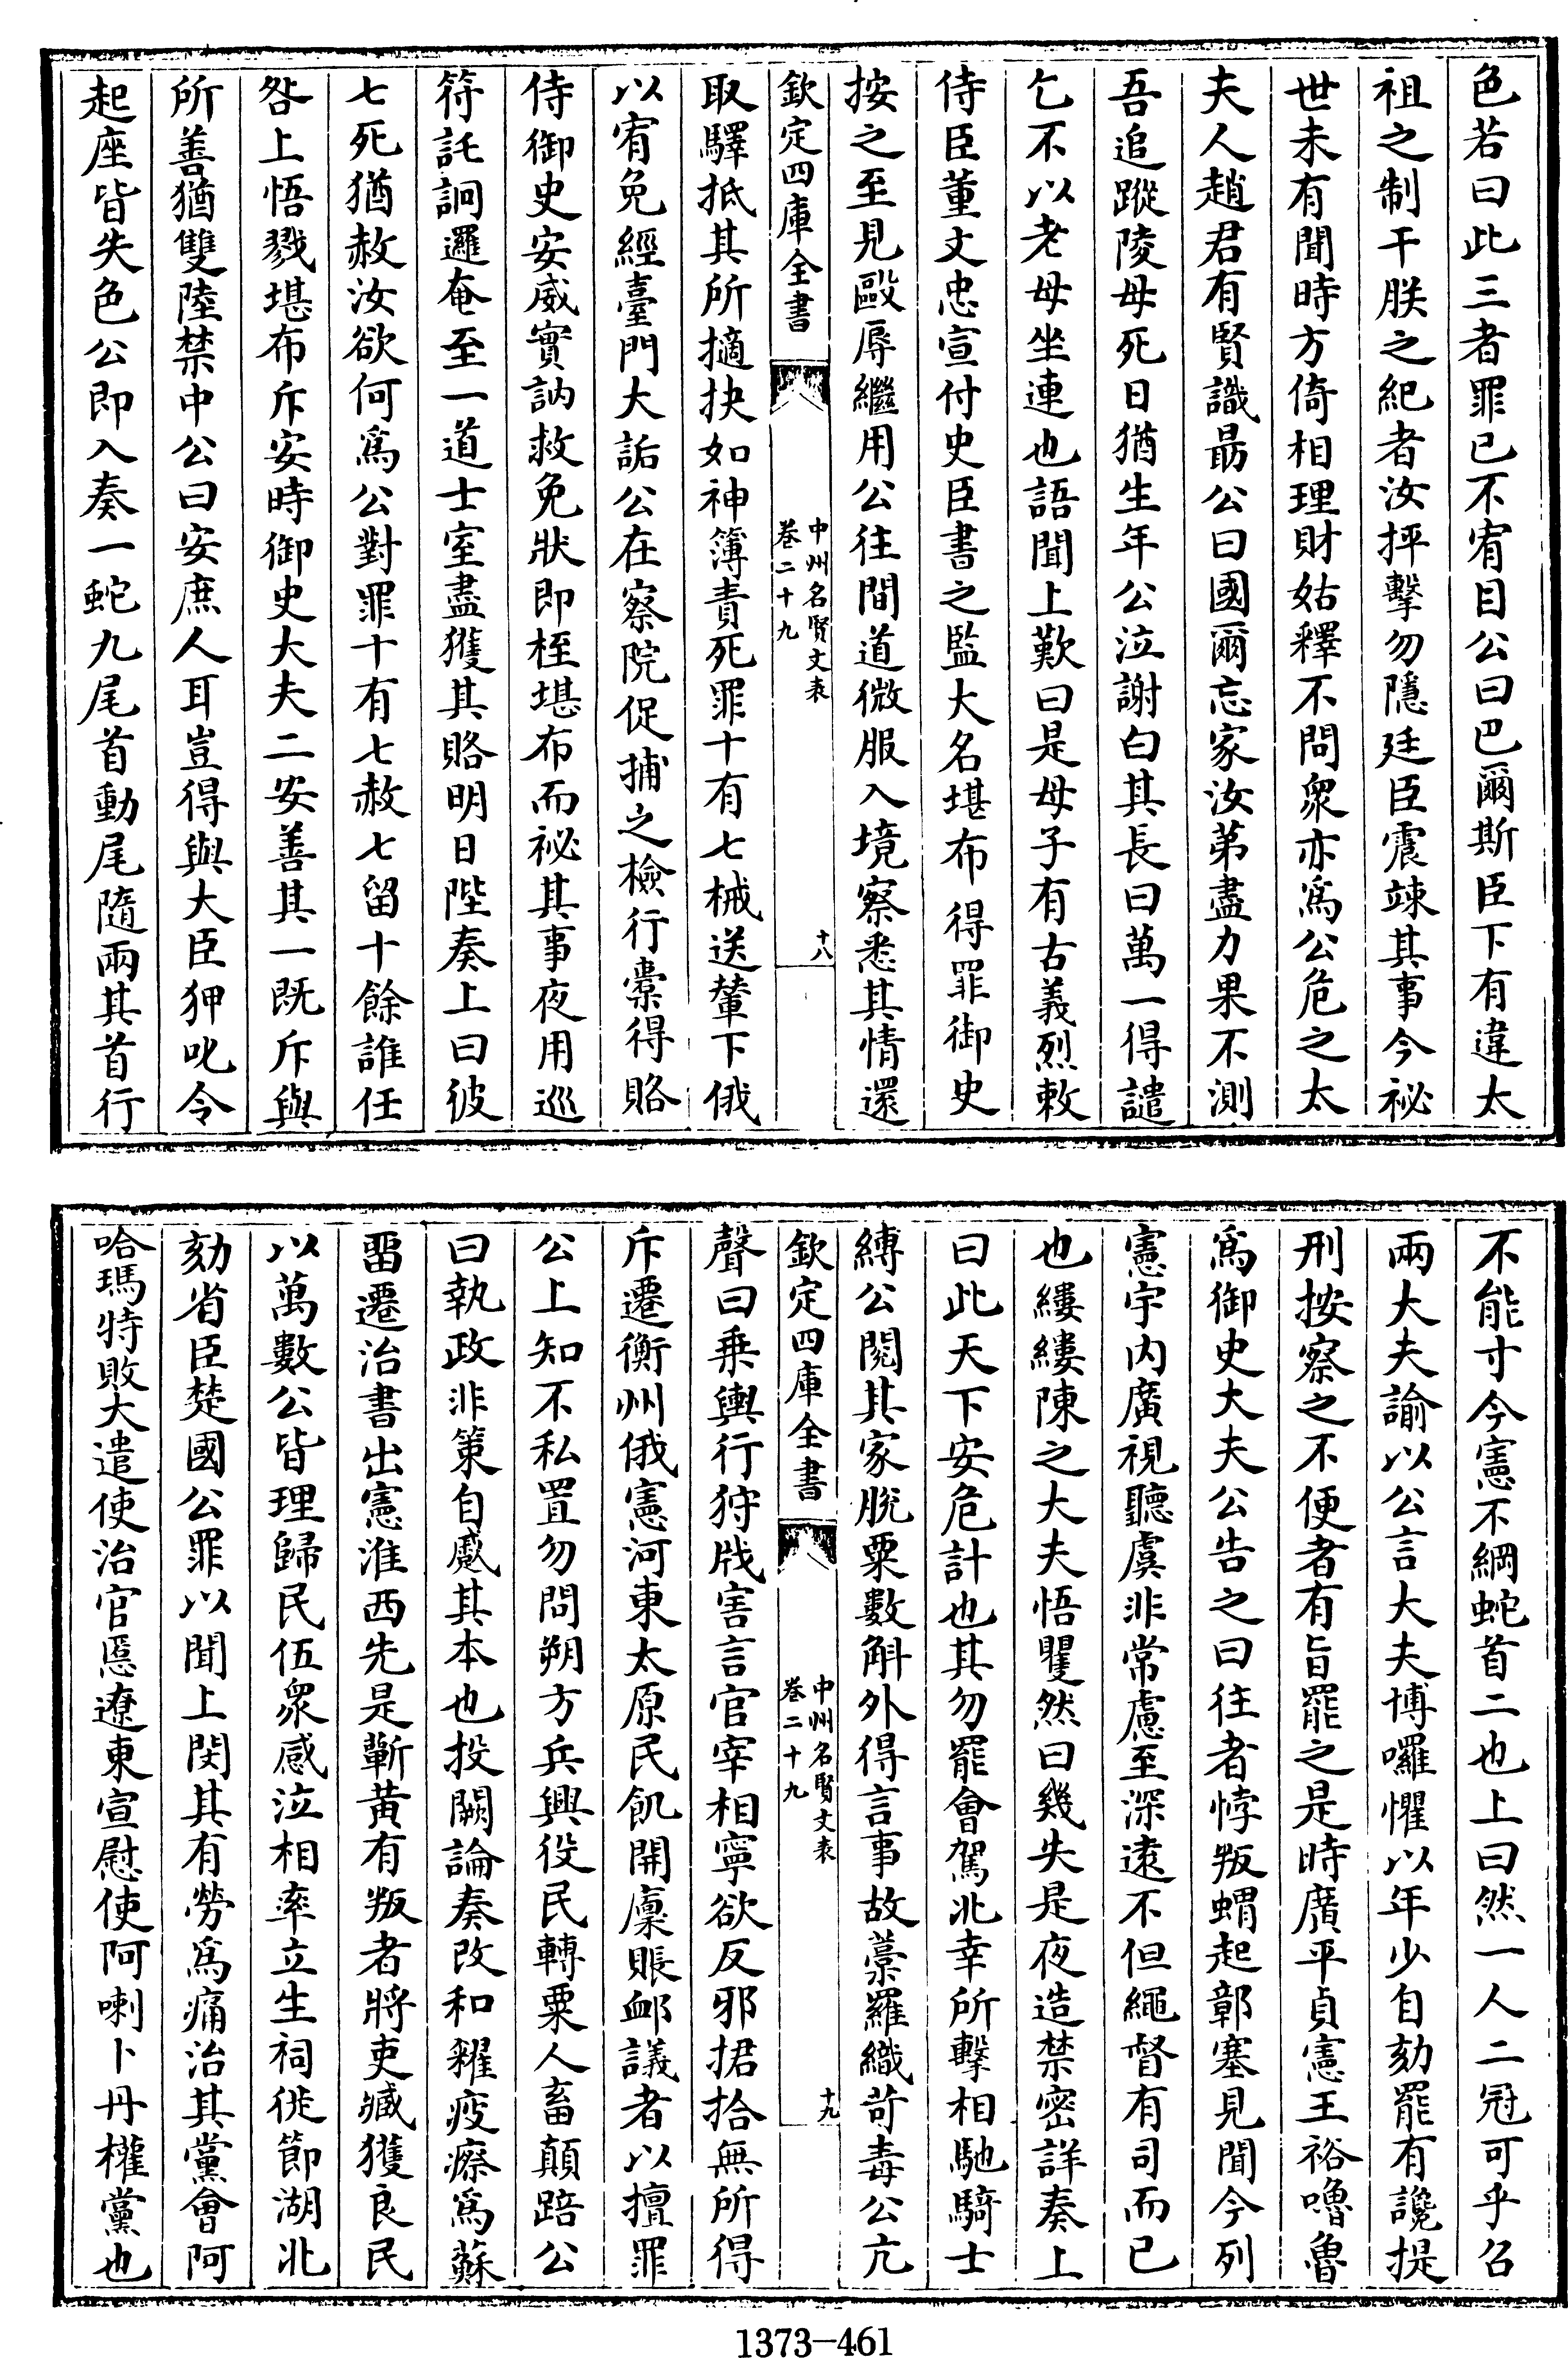 色若曰此三者罪已不宥目公曰巴爾斯臣下有違太
祖之制干朕之紀者汝抨擊勿隱廷臣震竦其事今祕
世未有聞時方倚相理財姑釋不問衆亦爲公危之太
夫人趙君有賢識勗公曰國爾忘家汝第盡力果不測
吾追蹤陵母死日猶生年公泣謝白其長曰萬一得譴
乞不以老母坐連也語聞上歎曰是母子有古義烈敕
侍臣董文忠宣付史臣書之監大名堪布得罪御史
按之至見毆辱繼用公往間道微服入境察悉其情還
欽定四庫全書
中州名賢文表
卷二十九
十八
取驛抵其所擿抉如神簿責死罪十有七械送輦下俄
以宥免經臺門大詬公在察院促捕之檢行橐得賂
侍御史安威實訥救免狀即桎堪布而祕其事夜用巡
符託詗邏奄至一道士室盡獲其賂明日陛奏上曰彼
七死猶赦汝欲何爲公對罪十有七赦七留十餘誰任
咎上悟戮堪布斥安時御史大夫二安善其一既斥與
所善猶雙陸禁中公曰安庶人耳豈得與大臣狎叱令
起座皆失色公即入奏一蛇九尾首動尾隨兩其首行
不能寸今憲不綱蛇首二也上曰然一人二冠可乎召
兩大夫諭以公言大夫博囉懼以年少自劾罷有讒提
刑按察之不便者有旨罷之是時廣平貞憲王裕嚕魯
爲御史大夫公告之曰往者悖叛蝟起鄣塞見聞今列
憲宇内廣視聽虞非常慮至深遠不但繩督有司而已
也縷縷陳之大夫悟瞿然曰幾失是夜造禁密詳奏上
曰此天下安危計也其勿罷會駕北幸所擊相馳騎士
縛公閱其家脫粟數斛外得言事故藁羅織苛毒公亢
欽定四庫全書
中州名賢文表
卷二十九
十九
聲曰乗輿行狩戕害言官宰相寧欲反邪捃拾無所得
斥遷衡州俄憲河東太原民飢開廩賑䘏議者以擅罪
公上知不私置勿問朔方兵興役民轉粟人畜顛踣公
曰執政非策自蹙其本也投闕論奏改和糴疲瘵爲蘇
畱遷治書出憲淮西先是蘄黄有叛者將吏臧獲良民
以萬數公皆理歸民伍衆感泣相率立生祠徙節湖北
劾省臣楚國公罪以聞上閔其有勞爲痛治其黨會阿
哈瑪特敗大遣使治官慝遼東宣慰使阿喇卜丹權黨也
1373-461